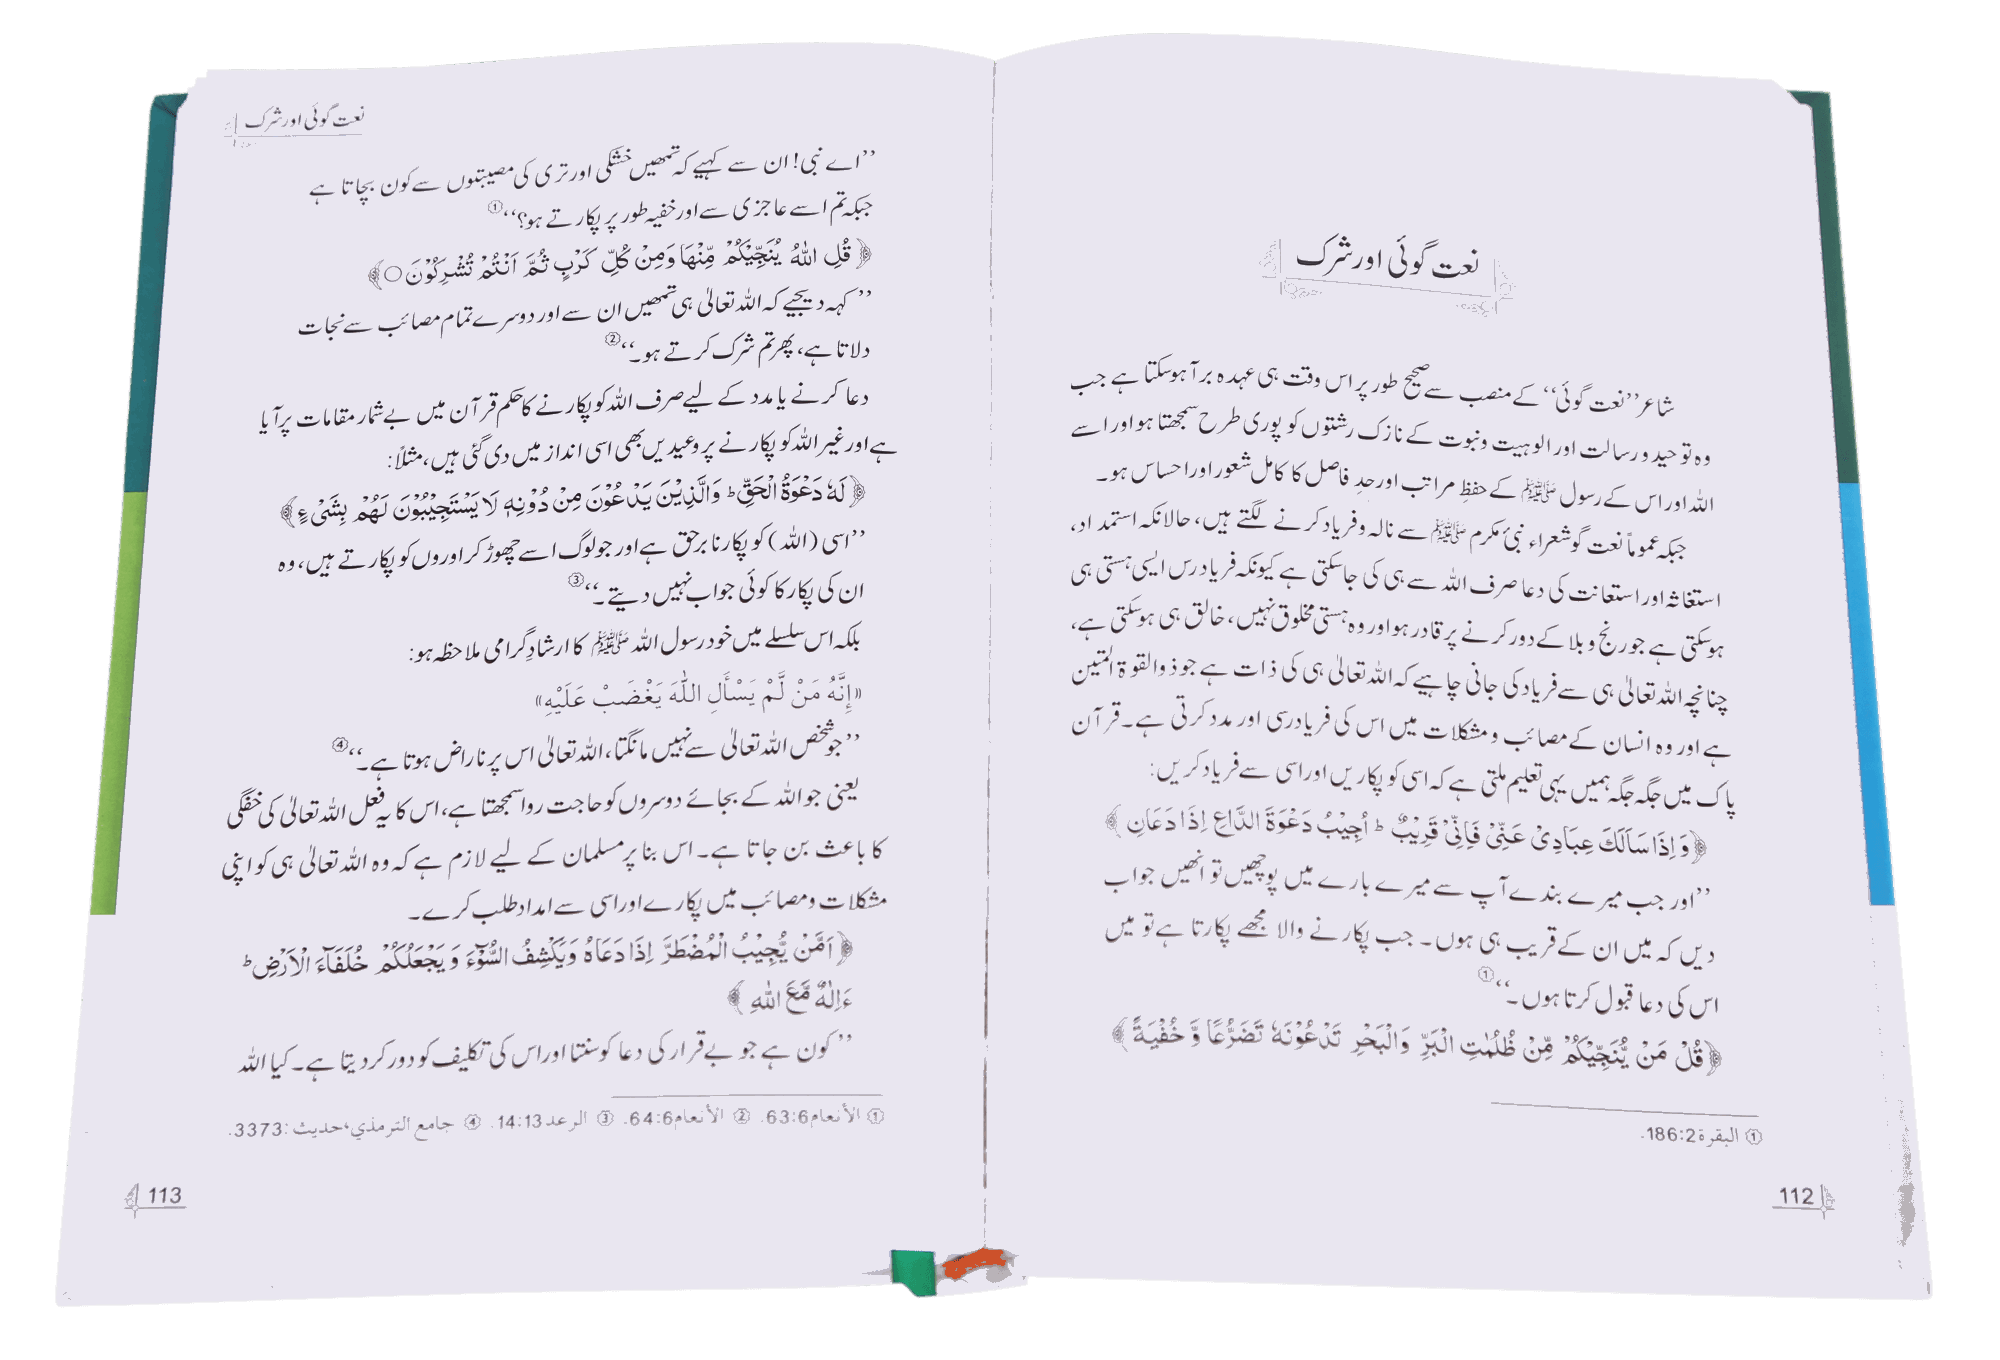 نعت گوئی اور شرک
شاعر ’’نعت گوئی‘‘ کے منصب سے صحیح طور پر اس وقت ہی عہدہ برآ ہوسکتا ہے جب
وہ توحید و رسالت اور الوہیت ونبوت کے نازک رشتوں کو پوری طرح سمجھتا ہو اور اسے
اللہ اور اس کے رسول ﷺ کے حفظِ مراتب اور حدِ فاصل کا کامل شعور اور احساس ہو۔
جبکہ عموماً نعت گو شعراء نبیٔ مکرم ﷺ سے نالہ وفریاد کرنے لگتے ہیں، حالانکہ استمداد،
استغاثہ اور استعانت کی دعا صرف اللہ سے ہی کی جاسکتی ہے کیونکہ فریاد رس ایسی ہستی ہی
ہوسکتی ہے جو رنج و بلا کے دور کرنے پر قادر ہو اور وہ ہستی مخلوق نہیں، خالق ہی ہوسکتی ہے،
چنانچہ اللہ تعالیٰ ہی سے فریاد کی جانی چاہیے کہ اللہ تعالیٰ ہی کی ذات ہے جو ذوالقوۃ المتین
ہے اور وہ انسان کے مصائب و مشکلات میں اس کی فریاد رسی اور مدد کرتی ہے۔ قرآن
پاک میں جگہ جگہ ہمیں یہی تعلیم ملتی ہے کہ اسی کو پکاریں اور اسی سے فریاد کریں:
﴿وَاِذَا سَاَلَكَ عِبَادِیْ عَنِّیْ فَاِنِّیْ قَرِیْبٌ ؕ اُجِیْبُ دَعْوَةَ الدَّاعِ اِذَا دَعَانِ﴾
’’اور جب میرے بندے آپ سے میرے بارے میں پوچھیں تو انھیں جواب
دیں کہ میں ان کے قریب ہی ہوں۔ جب پکارنے والا مجھے پکارتا ہے تو میں
اس کی دعا قبول کرتا ہوں۔‘‘ ①
﴿قُلْ مَنْ یُّنَجِّیْكُمْ مِّنْ ظُلُمٰتِ الْبَرِّ وَالْبَحْرِ تَدْعُوْنَهٗ تَضَرُّعًا وَّ خُفْیَةً﴾
① البقرة 2:186.
112
نعت گوئی اور شرک
’’اے نبی! ان سے کہیے کہ تمھیں خشکی اور تری کی مصیبتوں سے کون بچاتا ہے
جبکہ تم اسے عاجزی سے اور خفیہ طور پر پکارتے ہو؟‘‘ ①
﴿قُلِ اللهُ یُنَجِّیْكُمْ مِّنْهَا وَمِنْ كُلِّ كَرْبٍ ثُمَّ اَنْتُمْ تُشْرِكُوْنَ ○﴾
’’کہہ دیجیے کہ اللہ تعالیٰ ہی تمھیں ان سے اور دوسرے تمام مصائب سے نجات
دلاتا ہے، پھر تم شرک کرتے ہو۔‘‘ ②
دعا کرنے یا مدد کے لیے صرف اللہ کو پکارنے کا حکم قرآن میں بے شمار مقامات پر آیا
ہے اور غیر اللہ کو پکارنے پر وعیدیں بھی اسی انداز میں دی گئی ہیں، مثلاً:
﴿لَهٗ دَعْوَةُ الْحَقِّ ؕ وَالَّذِیْنَ یَدْعُوْنَ مِنْ دُوْنِهٖ لَا یَسْتَجِیْبُوْنَ لَهُمْ بِشَیْءٍ﴾
’’اسی (اللہ) کو پکارنا برحق ہے اور جو لوگ اسے چھوڑ کر اوروں کو پکارتے ہیں، وہ
ان کی پکار کا کوئی جواب نہیں دیتے۔‘‘ ③
بلکہ اس سلسلے میں خود رسول اللہ ﷺ کا ارشادِ گرامی ملاحظہ ہو:
«إِنَّهُ مَنْ لَّمْ يَسْأَلِ اللّٰهَ يَغْضَبْ عَلَيْهِ»
’’جو شخص اللہ تعالیٰ سے نہیں مانگتا، اللہ تعالیٰ اس پر ناراض ہوتا ہے۔‘‘ ④
یعنی جو اللہ کے بجائے دوسروں کو حاجت روا سمجھتا ہے، اس کا یہ فعل اللہ تعالیٰ کی خفگی
کا باعث بن جاتا ہے۔ اس بنا پر مسلمان کے لیے لازم ہے کہ وہ اللہ تعالیٰ ہی کو اپنی
مشکلات ومصائب میں پکارے اور اسی سے امداد طلب کرے۔
﴿اَمَّنْ یُّجِیْبُ الْمُضْطَرَّ اِذَا دَعَاهُ وَیَكْشِفُ السُّوْٓءَ وَ یَجْعَلُكُمْ خُلَفَآءَ الْاَرْضِ ؕ
ءَاِلٰهٌ مَّعَ اللهِ﴾
’’کون ہے جو بے قرار کی دعا کو سنتا اور اس کی تکلیف کو دور کر دیتا ہے۔ کیا اللہ
① الأنعام 6:63. ② الأنعام 6:64. ③ الرعد 14:13. ④ جامع الترمذي، حديث: 3373.
113